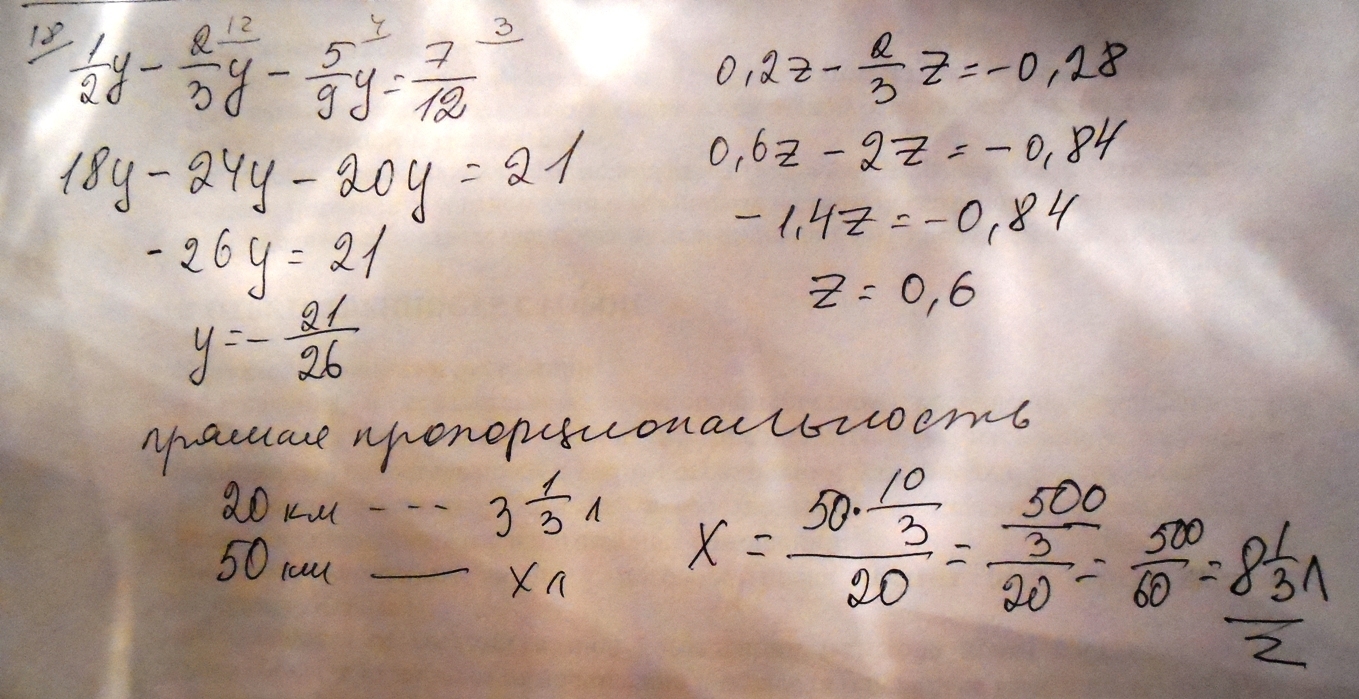 18 1/2 y - 2/3 12 y - 5/9 4 y = 7/12 3
18y - 24y - 20y = 21
-26y = 21
y = - 21/26
0,2z - 2/3 z = -0,28
0,6z - 2z = -0,84
-1,4z = -0,84
z = 0,6
прямая пропорциональность
20 км --- 3 1/3 л
50 км — x л
X = (50 · 10/3)/20 = (500/3)/20 = 500/60 = 8 1/3 л